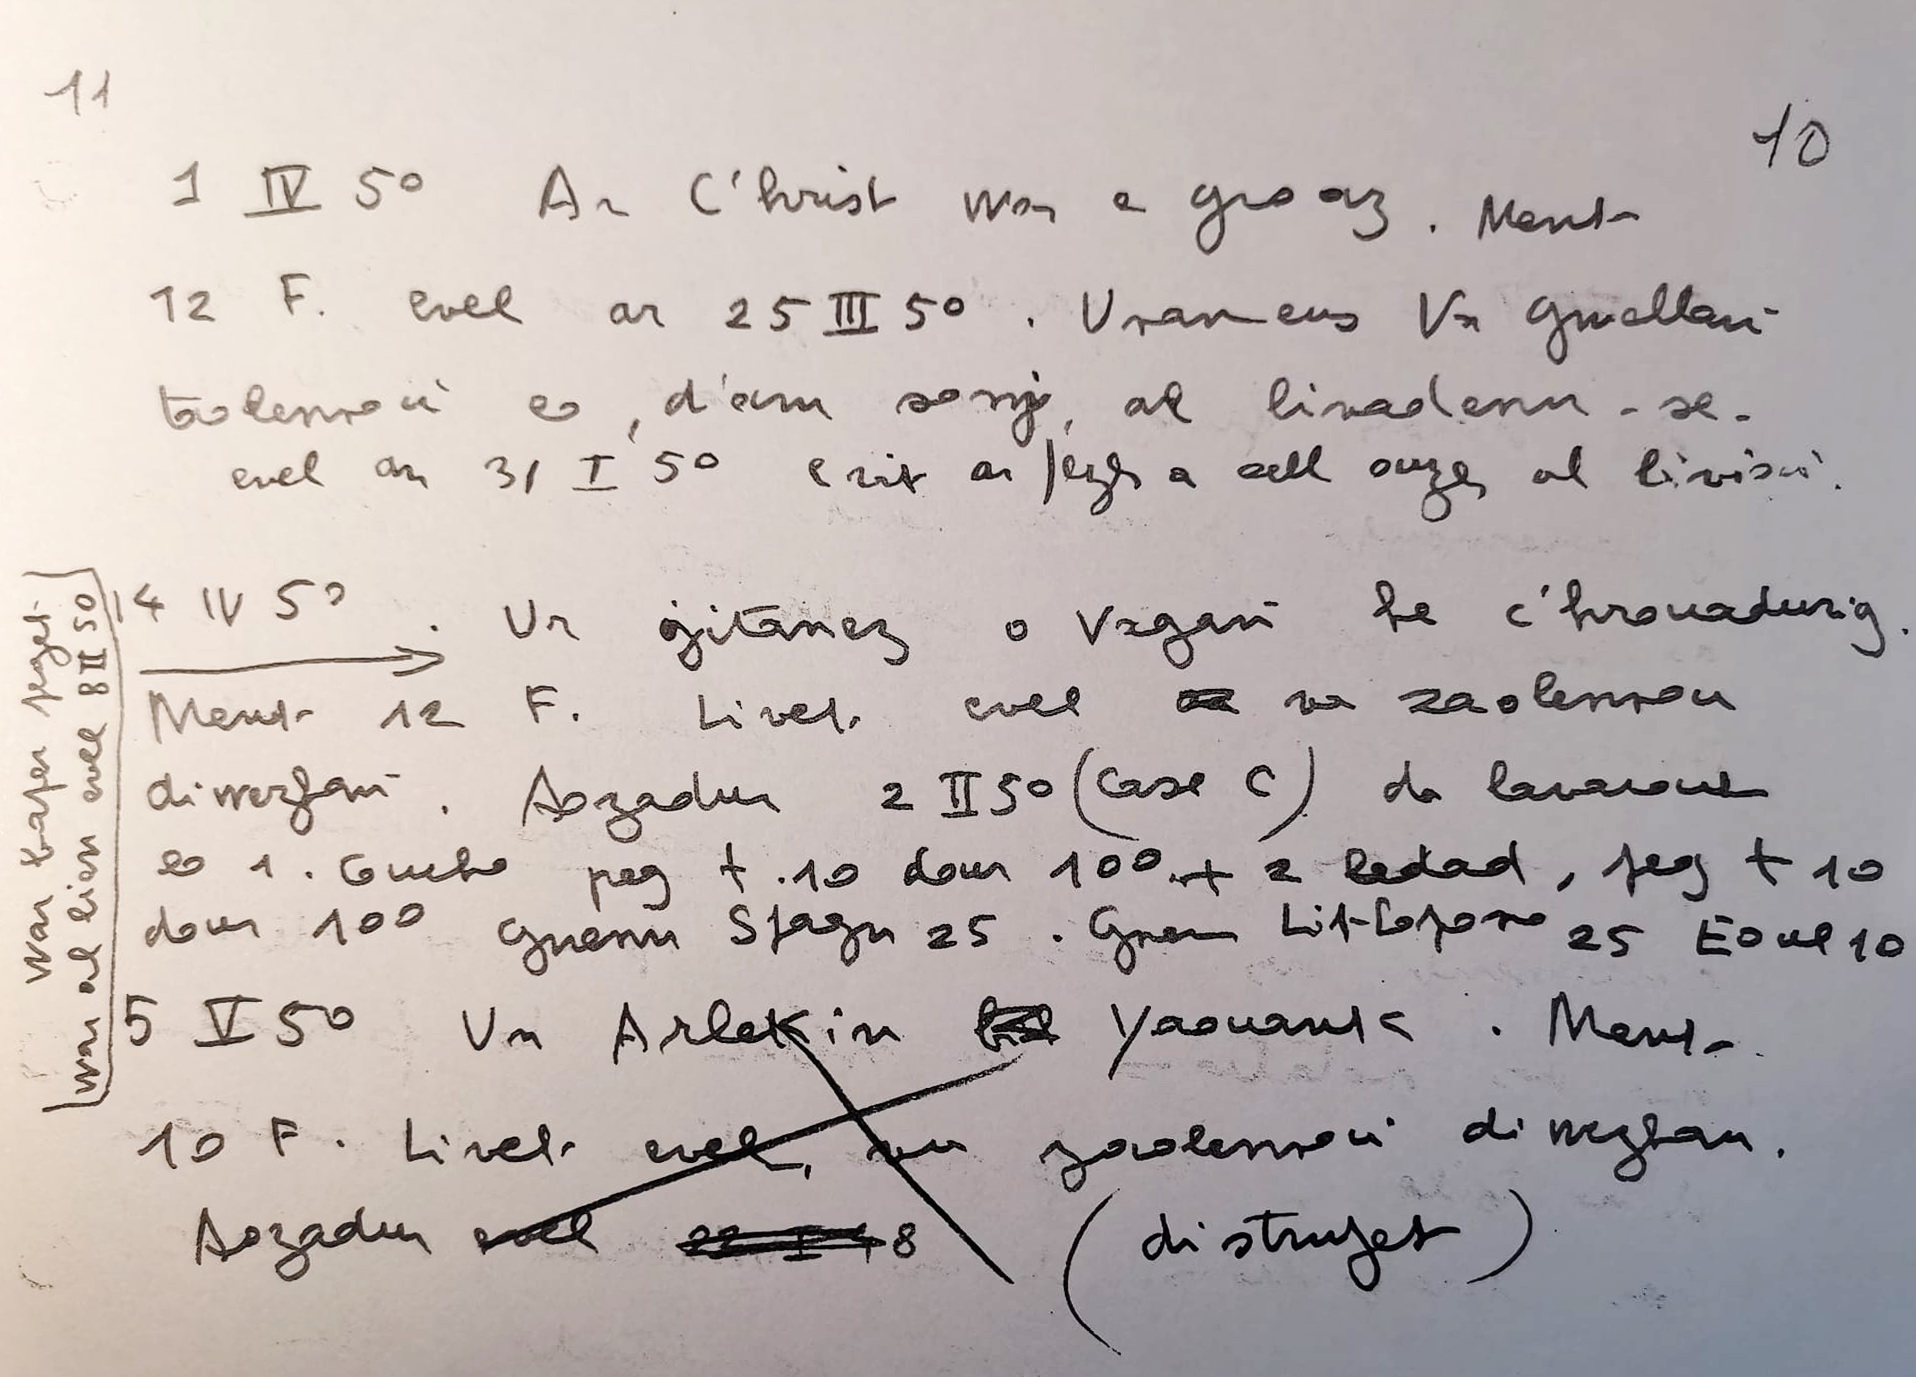 11
10
1 IV 50 Ar C'hrist war e groaz. Ment
12 F. evel ar 25 III 50. Unan eus Va gwellañ
taolennoù eo, d'am soñj, al livadenn-se.
evel an 31 I 50 evit ar peg a sell ouzh al livioù.
14 IV 50. Ur gitanez o Vagañ he c'hrouadurig.
Ment 12 F. Livet evel va zaolennou
diwezhañ. Aozadur 2 II 50 (Case C) da lavarout
eo 1. peg + 10 dour 100 + 2 , peg + 10
dour 100 gwenn Spagn 25. Gwenn Litopone 25 Eoul 10
War baper peget
war al lien evel 8 II 50
5 V 50 Un Arlekin Yaouank. Ment
10 F. Livet evel, va zaolennoù diwezhañ.
Aozadur evel 8 (distrujet)